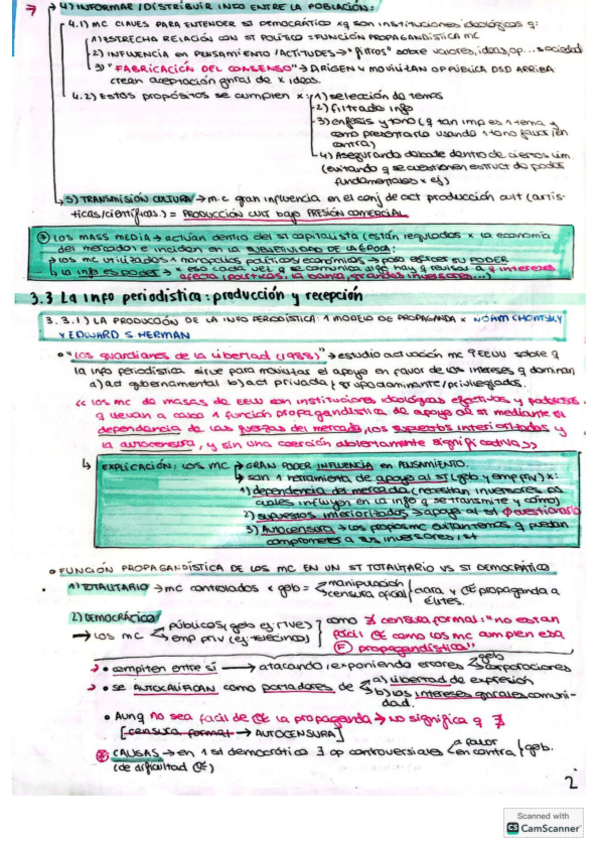 4) INFORMAR / DISTRIBUIR INFO ENTRE LA POBLACIÓN:
4.1) MC CLAVES PARA ENTENDER ST DEMOCRÁTICO xq son instituciones ideológicas q:
1) ESTRECHA RELACIÓN CON ST POLÍTICO = FUNCIÓN PROPAGANDÍSTICA MC
2) INFLUENCIA EN PENSAMIENTO / ACTITUDES → "filtros" sobre valores, ideas, op... sociedad
3) "FABRICACIÓN DEL CONSENSO" → DIRIGEN Y MOVILIZAN OP PÚBLICA DSD ARRIBA
crean aceptación gnral de x ideas.
4.2) Estos propósitos se cumplen x:
1) selección de temas
2) filtrado info
3) énfasis y tono (q tan imp es 1 tema y
como presentarlo usando 1 tono favor / en
contra)
4) Asegurando debate dentro de ciertos lim.
(evitando q se cuestionen estruct de poder
fundamentales x ej)
5) TRANSMISIÓN CULTURA → mc gran influencia en el conj de act producción cult (artis-
ticas/científicas) = PRODUCCIÓN CULT bajo PRESIÓN COMERCIAL
LOS MASS MEDIA → actúan dentro del st capitalista (están regulados x la economía
del mercado) e inciden en la SUBJETIVIDAD DE LA ÉPOCA:
→ los mc utilizados 1 monopolios políticos/económicos → para ejercer su PODER
↳ la info es poder → x eso cada vez q se comunica algo hay q revisar a q intereses
afecta (políticos, la banca, grandes inversores...)
3.3 La info periodística: producción y recepción
3.3.1) LA PRODUCCIÓN DE LA INFO PERIODÍSTICA: 1 MODELO DE PROPAGANDA x NOAM CHOMSKY
Y EDWARD S HERMAN
• "Los guardianes de la libertad (1988)" → estudio actuación mc EEUU sobre q
la info periodística sirve para movilizar el apoyo en favor de los intereses q dominan
a) act gubernamental b) act privada / grupo dominante/privilegiados.
<< los mc de masas de EEUU son instituciones ideológicas efectivas y poderosas
q llevan a cabo 1 función propagandística de apoyo al st mediante su
dependencia de las fuerzas del mercado, los supuestos interiorizados y
la autocensura, y sin una coerción abiertamente significativa >>
↳ EXPLICACIÓN: LOS MC → GRAN PODER INFLUENCIA en PENSAMIENTO.
→ son 1 herramienta de apoyo al st (gob y emp priv) x:
1) dependencia del mercado (necesitan inversores los
cuales influyen en la info q se transmite y cómo)
2) supuestos interiorizados → apoya al st
3) Autocensura → los propios mc evitan temas q puedan
comprometer a sus inversores / st
• FUNCIÓN PROPAGANDÍSTICA DE LOS MC EN UN ST TOTALITARIO VS ST DEMOCRÁTICO
1) TOTALITARIO → mc controlados x gob = manipulación
censura oficial / clara y propaganda a
élites.
2) DEMOCRÁTICO
→ los mc públicos (gob ej: rtve)
emp priv (ej: telecinco)
como ∄ censura formal: "no es tan
fácil como los mc cumplen esa
(F) propagandística"
• compiten entre sí → atacando / exponiendo errores gob
corporaciones
• se AUTOCALIFICAN como portadores de a) libertad de expresión
b) los intereses gnrales comuni-
dad.
• Aunq no sea fácil de la propaganda → no significa q ∄
[censura formal → AUTOCENSURA]
CAUSAS → en 1 st democrático ∃ op controversiales a favor
en contra / gob.
(de dificultad)
2
Scanned with
CS CamScanner